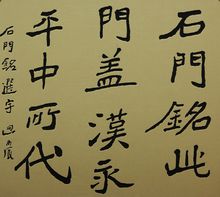 石門銘此
門蓋漢永
平中所代
石門銘選字